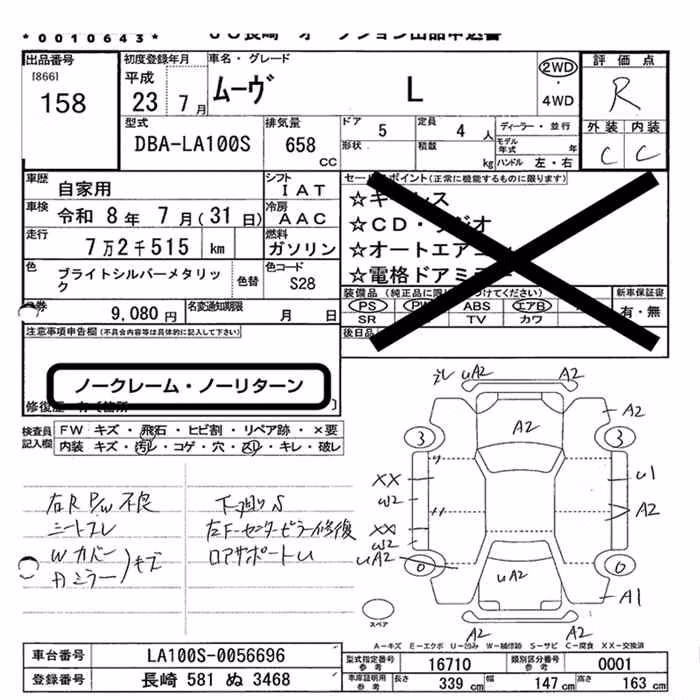 *0010643*
JU長崎 オークション出品申込書
出品番号 初度登録年月 車名・グレード 評価点
[866] 平成 ムーヴ L 2WD R
158 23 7月 ・ 4WD
外装 内装
C C
型式 排気量 ドア 5 定員 4人 ディーラー・並行
DBA-LA100S 658 CC 形状 積載 kg モデル年式 年
ハンドル 左・右
車歴 自家用 シフト IAT
セールスポイント(正常に機能するものに限ります)
車検 令和 8年 7月(31日) 冷房 AAC
☆キーレス
☆CD・ラジオ
走行 7万2千515 km 燃料 ガソリン
☆オートエアコン
☆電格ドアミラー
色 ブライトシルバーメタリック 色替 色コード S28
装備品(純正品に限り○をつけてください) 新車保証書
PS PW ABS エアB 有・無
SR TV カワ
券 9,080円 名変通知期限 月 日
後日品
注意事項申告欄(不具合内容等は具体的に記入して下さい)
ノークレーム・ノーリターン
修復歴 有〔箇所 〕
検査員記入欄 FW キズ・飛石・ヒビ割・リペア跡・×要
内装 キズ・汚レ・コゲ・穴・スリ・キレ・破レ
右R P/W不良 下廻りS
シートスレ 左F-センターピラー修復
Wカバー ロアサポートU
ドアミラー)キズ
uA2 A2
A2 A2
3 3
XX u1
W2 A2
XX
W2
uA2
0 0
uA2 A1
A2 A2
スペア
A-キズ E-エクボ U-凹み W-補修跡 S-サビ C-腐食 XX-交換済
車台番号 LA100S-0056696 型式指定番号 参考 16710 類別区分番号 参考 0001
登録番号 長崎 581 ぬ 3468 車庫証明用 参考 長さ 339 cm 幅 147 cm 高さ 163 cm